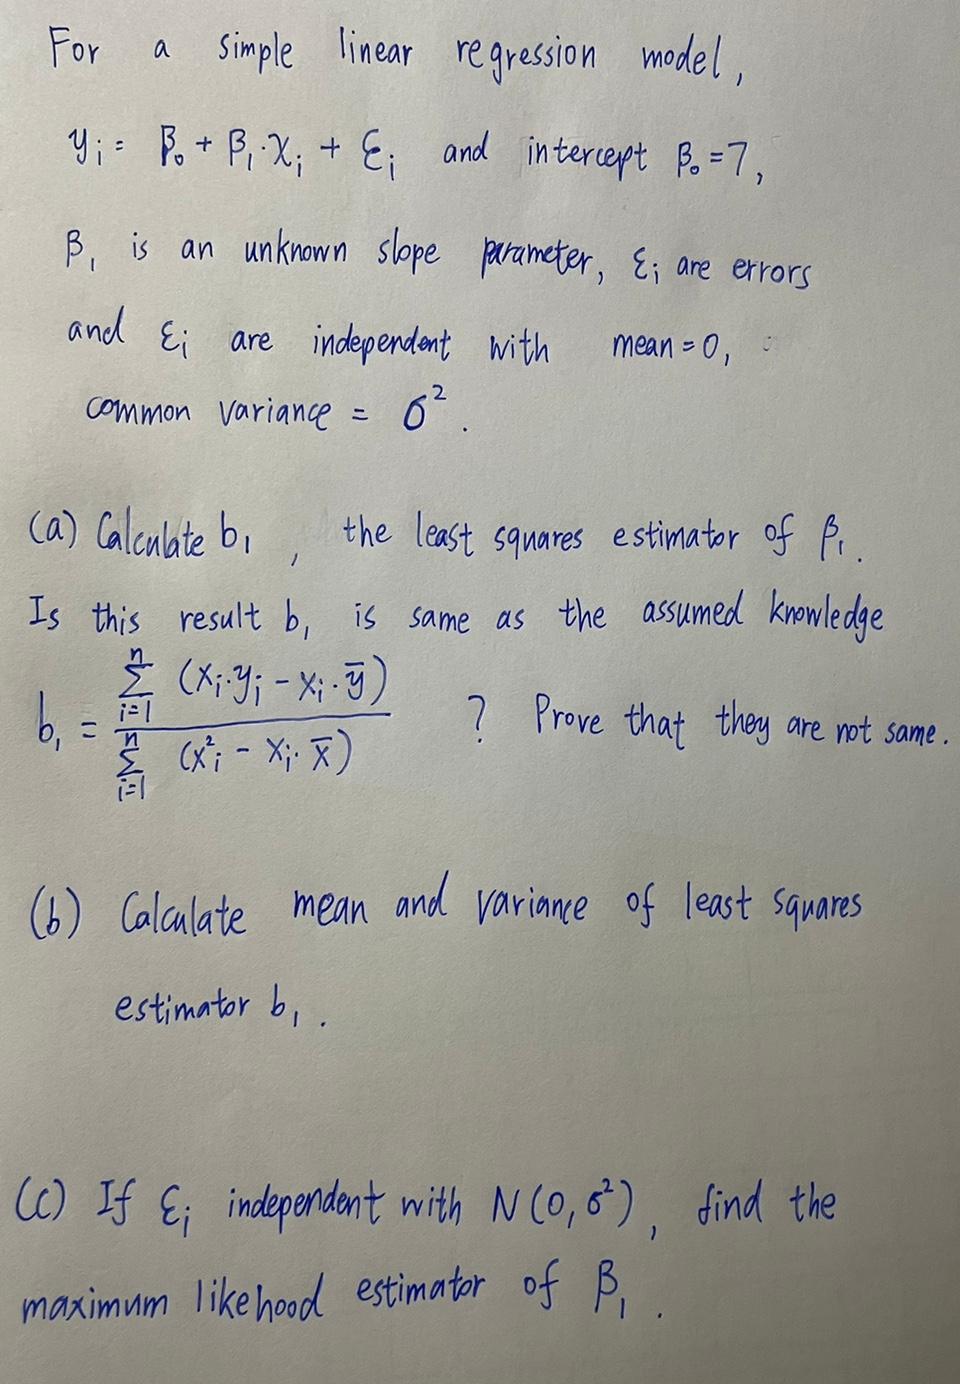 For a simple linear regression model,
yᵢ = β₀ + β₁·xᵢ + εᵢ and intercept β₀ = 7,
β₁ is an unknown slope parameter, εᵢ are errors
and εᵢ are independent with mean = 0,
common variance = σ².
(a) Calculate b₁, the least squares estimator of β₁.
Is this result b₁ is same as the assumed knowledge
b₁ = \frac{\sum_{i=1}^{n} (xᵢ·yᵢ - xᵢ·ȳ)}{\sum_{i=1}^{n} (x²ᵢ - xᵢ·x̄)} ? Prove that they are not same.
(b) Calculate mean and variance of least squares
estimator b₁.
(c) If εᵢ independent with N(0,σ²), find the
maximum likehood estimator of β₁.